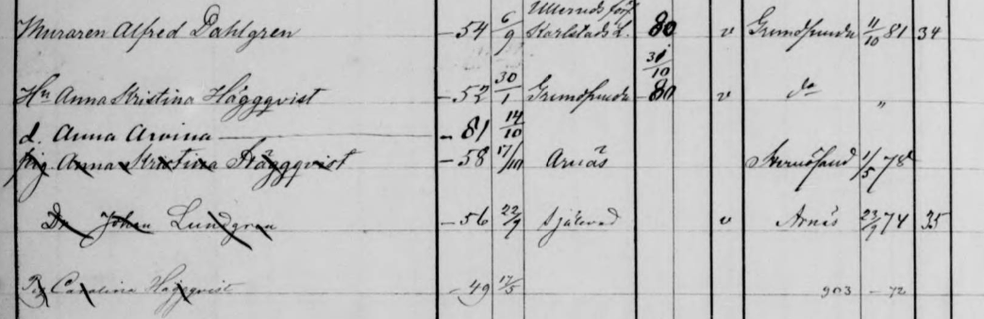 Ullerud förs
Muraren Alfred Dahlgren -54 6/9 Karlstads L. 80 v Grundsunda 11/10 81 34
31/10
Hu Anna Kristina Häggqvist -52 30/1 Grundsunda -80 v do "
d. Anna Arvina -81 14/10
pig. Anna Kristina Häggqvist -58 17/10 Arnäs Hernösand 1/5 78
Dr Johan Lundgren -56 22/9 Själevad v Arnäs 23/9 74 35
Pig Carolina Häggqvist -49 17/5 903 -72